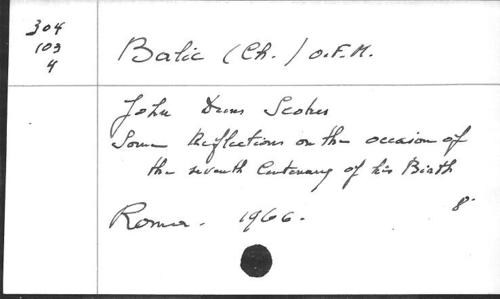 304
103
4
Balic (Ch.) O.F.M.
John Duns Scotus
Some Reflections on the occasion of
the seventh Centenary of his Birth
8°
Roma. 1966.